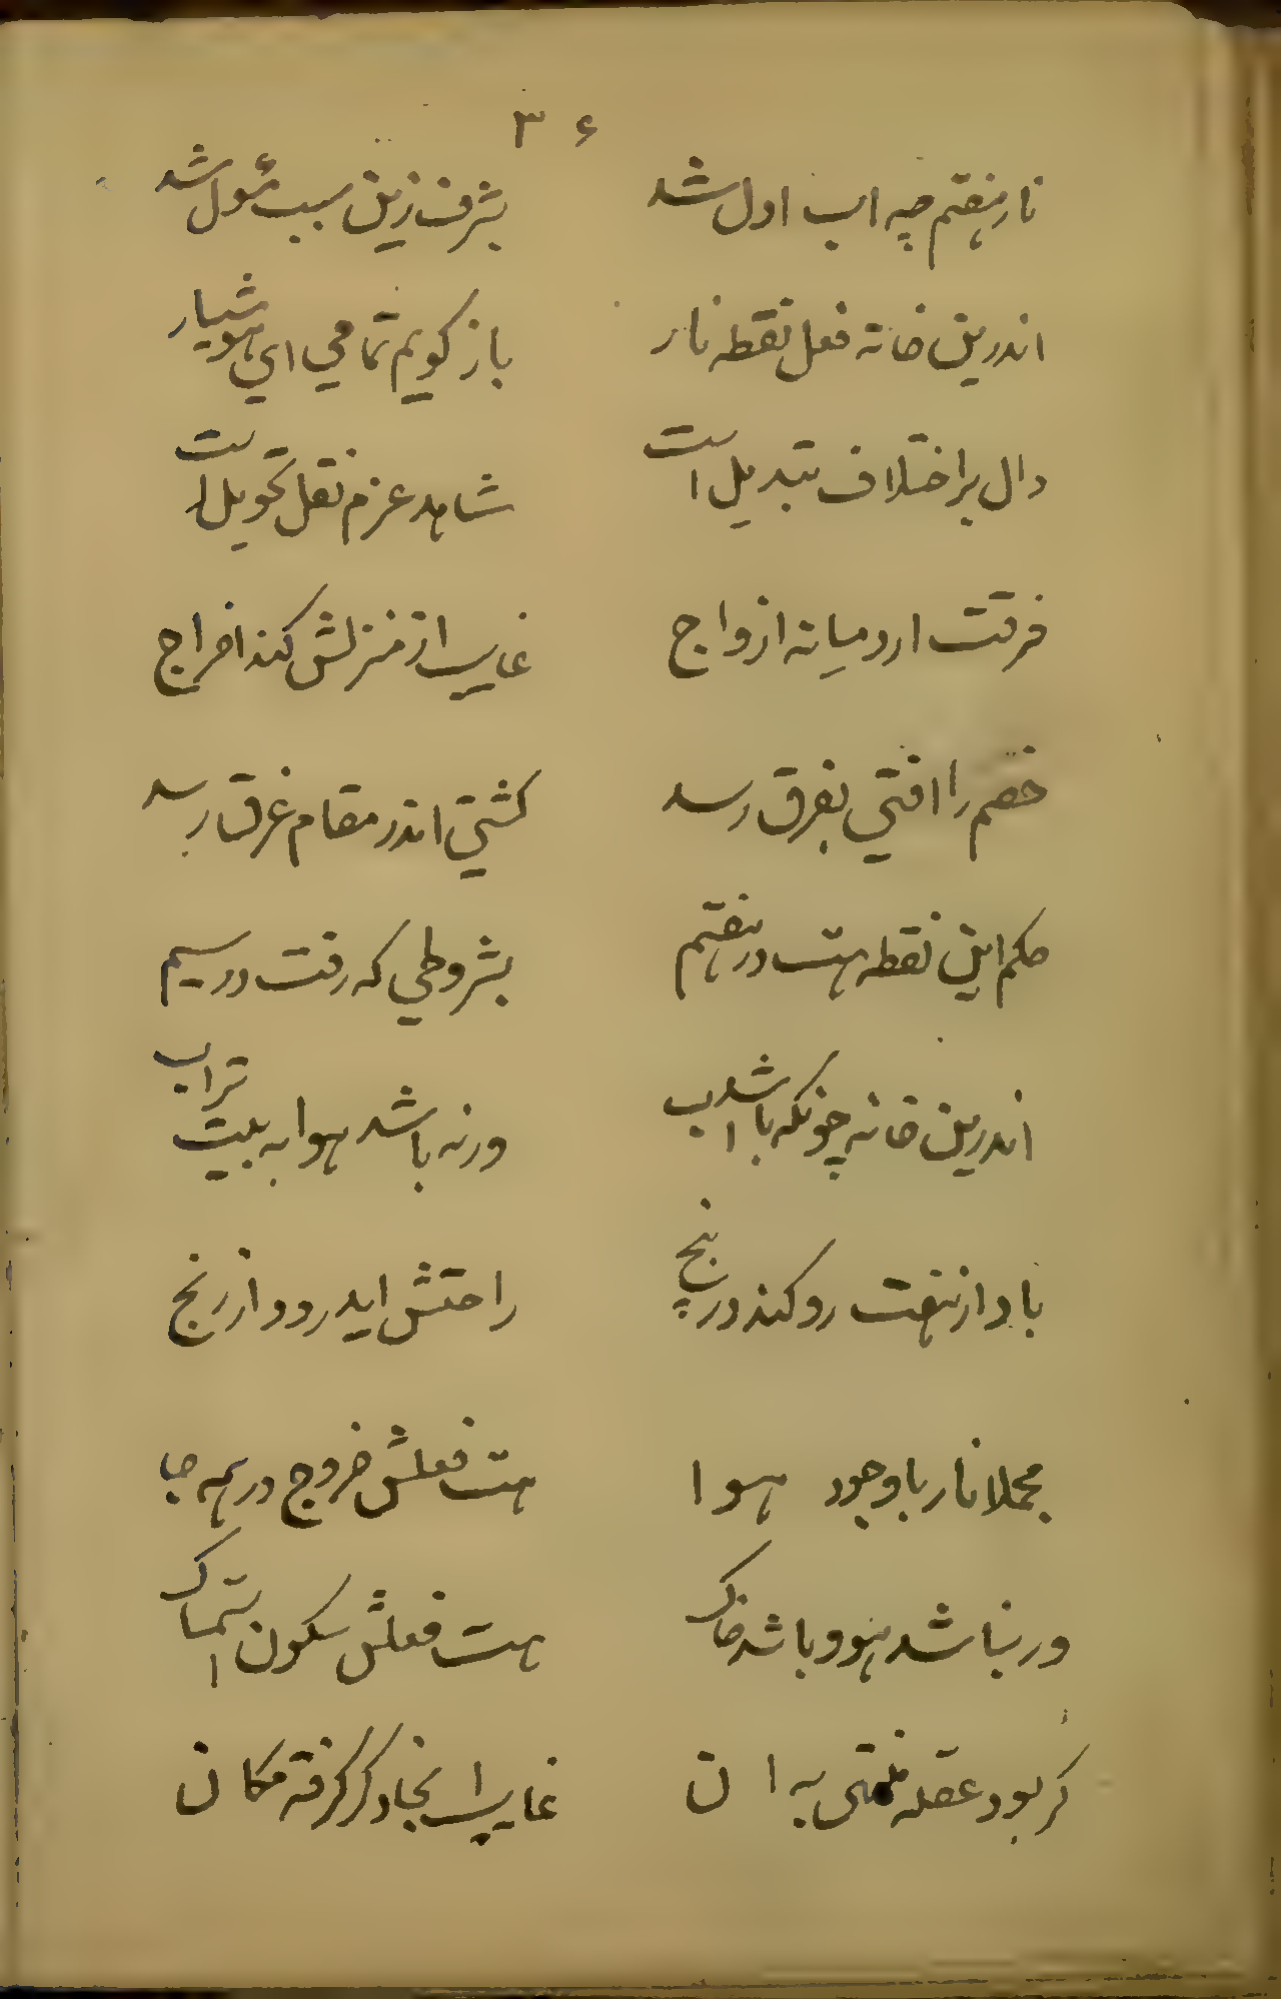 ۳۶
نار هفتم چه اب اول شد بشرف زین سبب مئول شد
اندرین خانه فعل نقطه نار باز کویم تمامی ای هوشیار
دال بر اختلاف تبدیل است شاهد عزم نقل تحویل است
فرقت ارد میانه ازواج غایب از منزلش کند اخراج
خصم را افتی بفرق رسد کشتی اندر مقام غرق رسد
حکم این نقطه هست در هفتم بشروطی که رفت در سیم
اندرین خانه چونکه باشد اب ورنه باشد هوا به بیت تراب
باد از هفت رو کند در پنج راحتش اید رود از رنج
مجملا نار با وجود هوا هست فعلش خروج در همه جا
ور نباشد هوو باشد خاک هست فعلش سکون استمساک
کر بود عقله به ان غایب دکر کرفته مکان